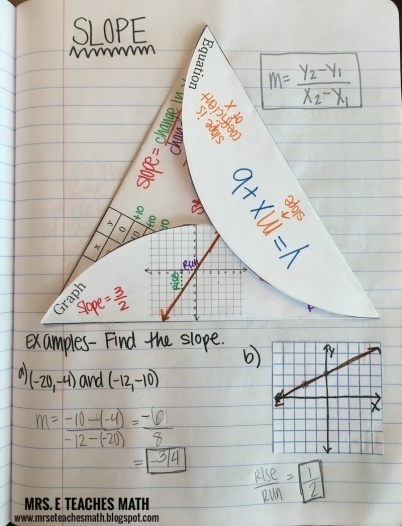 SLOPE
m= y₂-y₁
x₂-x₁
Equation
slope is
coefficient
of x
y=mx+b
slope
slope= change in
chan
x y
0
+10
+10
Rise
Run
Graph
slope = 3/2
Examples- Find the slope.
a) (-20,-4) and (-12,-10)
m= -10-(-4) = -6
-12-(-20) 8
= -3/4
b)
y
x
rise = 1
run 2
MRS. E TEACHES MATH
www.mrseteachesmath.blogspot.com